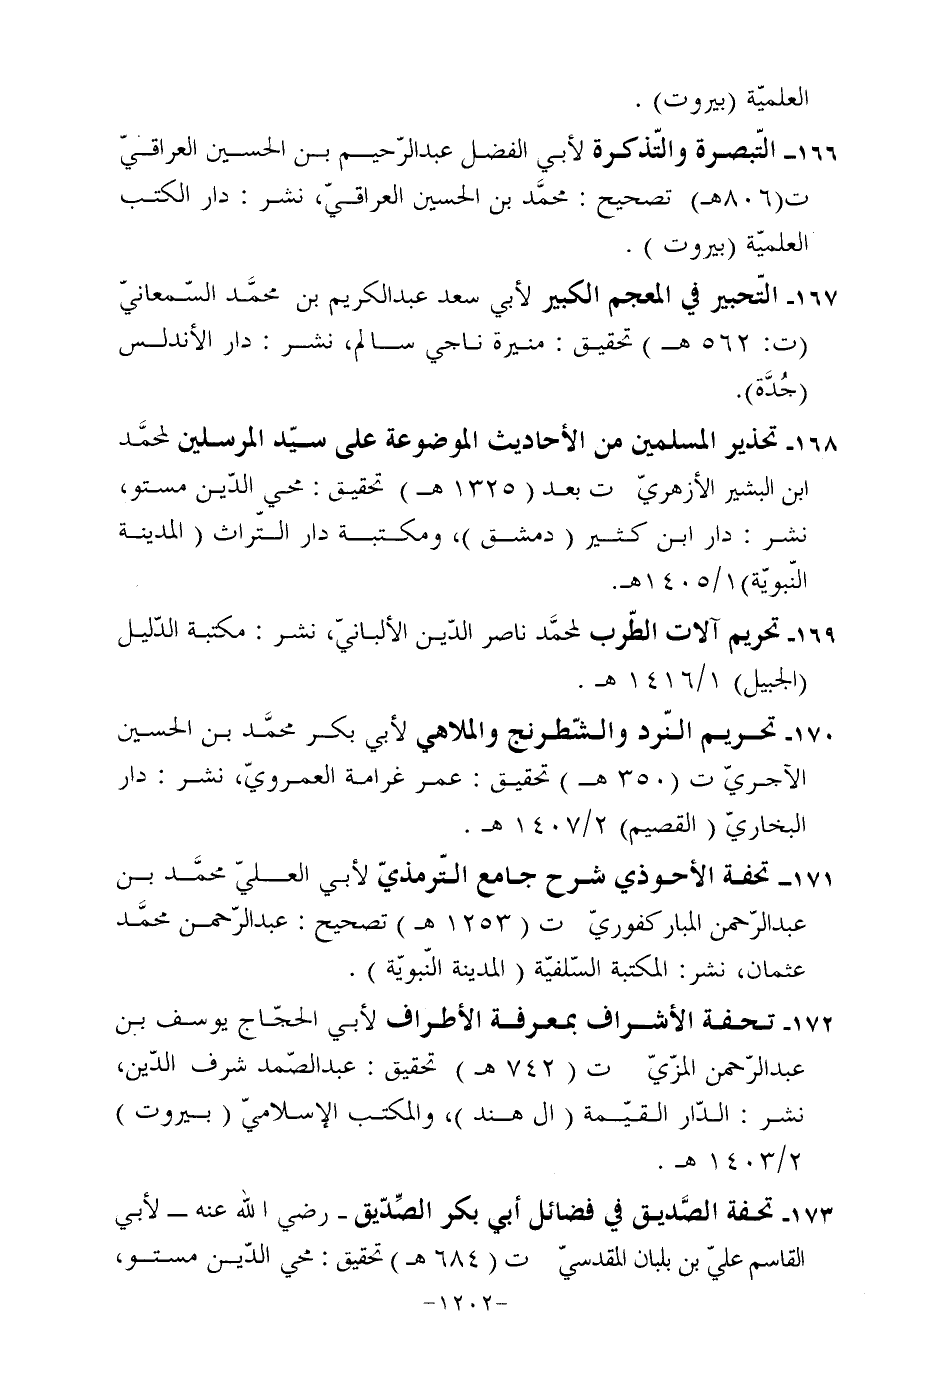 العلميّة (بيروت) .
١٦٦ـ التّبصرة والتّذكرة لأبي الفضل عبدالرّحيم بن الحسين العراقيّ
ت(٨٠٦هـ) تصحيح : محمَّد بن الحسين العراقيّ، نشر : دار الكتب
العلميّة (بيروت ) .
١٦٧ـ التّحبير في المعجم الكبير لأبي سعد عبدالكريم بن محمَّد السّمعانيّ
(ت: ٥٦٢ هـ ) تحقيق : منيرة ناجي سالم، نشر : دار الأندلس
(جُدَّة).
١٦٨ـ تحذير المسلمين من الأحاديث الموضوعة على سيّد المرسلين لمحمَّد
ابن البشير الأزهريّ ت بعد ( ١٣٢٥ هـ ) تحقيق : محي الدّين مستو،
نشر : دار ابن كثير ( دمشق )، ومكتبة دار التّراث ( المدينة
النّبويّة)١/ ١٤٠٥هـ.
١٦٩ـ تحريم آلات الطّرب لمحمَّد ناصر الدّين الألبانيّ، نشر : مكتبة الدّليل
(الجبيل) ١/ ١٤١٦ هـ .
١٧٠ـ تحريم النّرد والشّطرنج والملاهي لأبي بكر محمَّد بن الحسين
الآجريّ ت ( ٣٥٠ هـ ) تحقيق : عمر غرامة العمرويّ، نشر : دار
البخاريّ ( القصيم) ٢/ ١٤٠٧ هـ .
١٧١ـ تحفة الأحوذي شرح جامع التّرمذيّ لأبي العليّ محمَّد بن
عبدالرّحمن المباركفوريّ ت ( ١٢٥٣ هـ ) تصحيح : عبدالرّحمن محمَّد
عثمان، نشر : المكتبة السّلفيّة ( المدينة النّبويّة ) .
١٧٢ـ تحفة الأشراف بمعرفة الأطراف لأبي الحجّاج يوسف بن
عبدالرّحمن المزّيّ ت ( ٧٤٢ هـ ) تحقيق : عبدالصّمد شرف الدّين،
نشر : الدّار القيّمة ( ال هند )، والمكتب الإسلاميّ ( بيروت )
٢/ ١٤٠٣ هـ .
١٧٣ـ تحفة الصَّديق في فضائل أبي بكر الصِّدّيق ـ رضي الله عنه ـ لأبي
القاسم عليّ بن بلبان المقدسيّ ت ( ٦٨٤ هـ ) تحقيق : محي الدّين مستو،
-١٢٠٢-